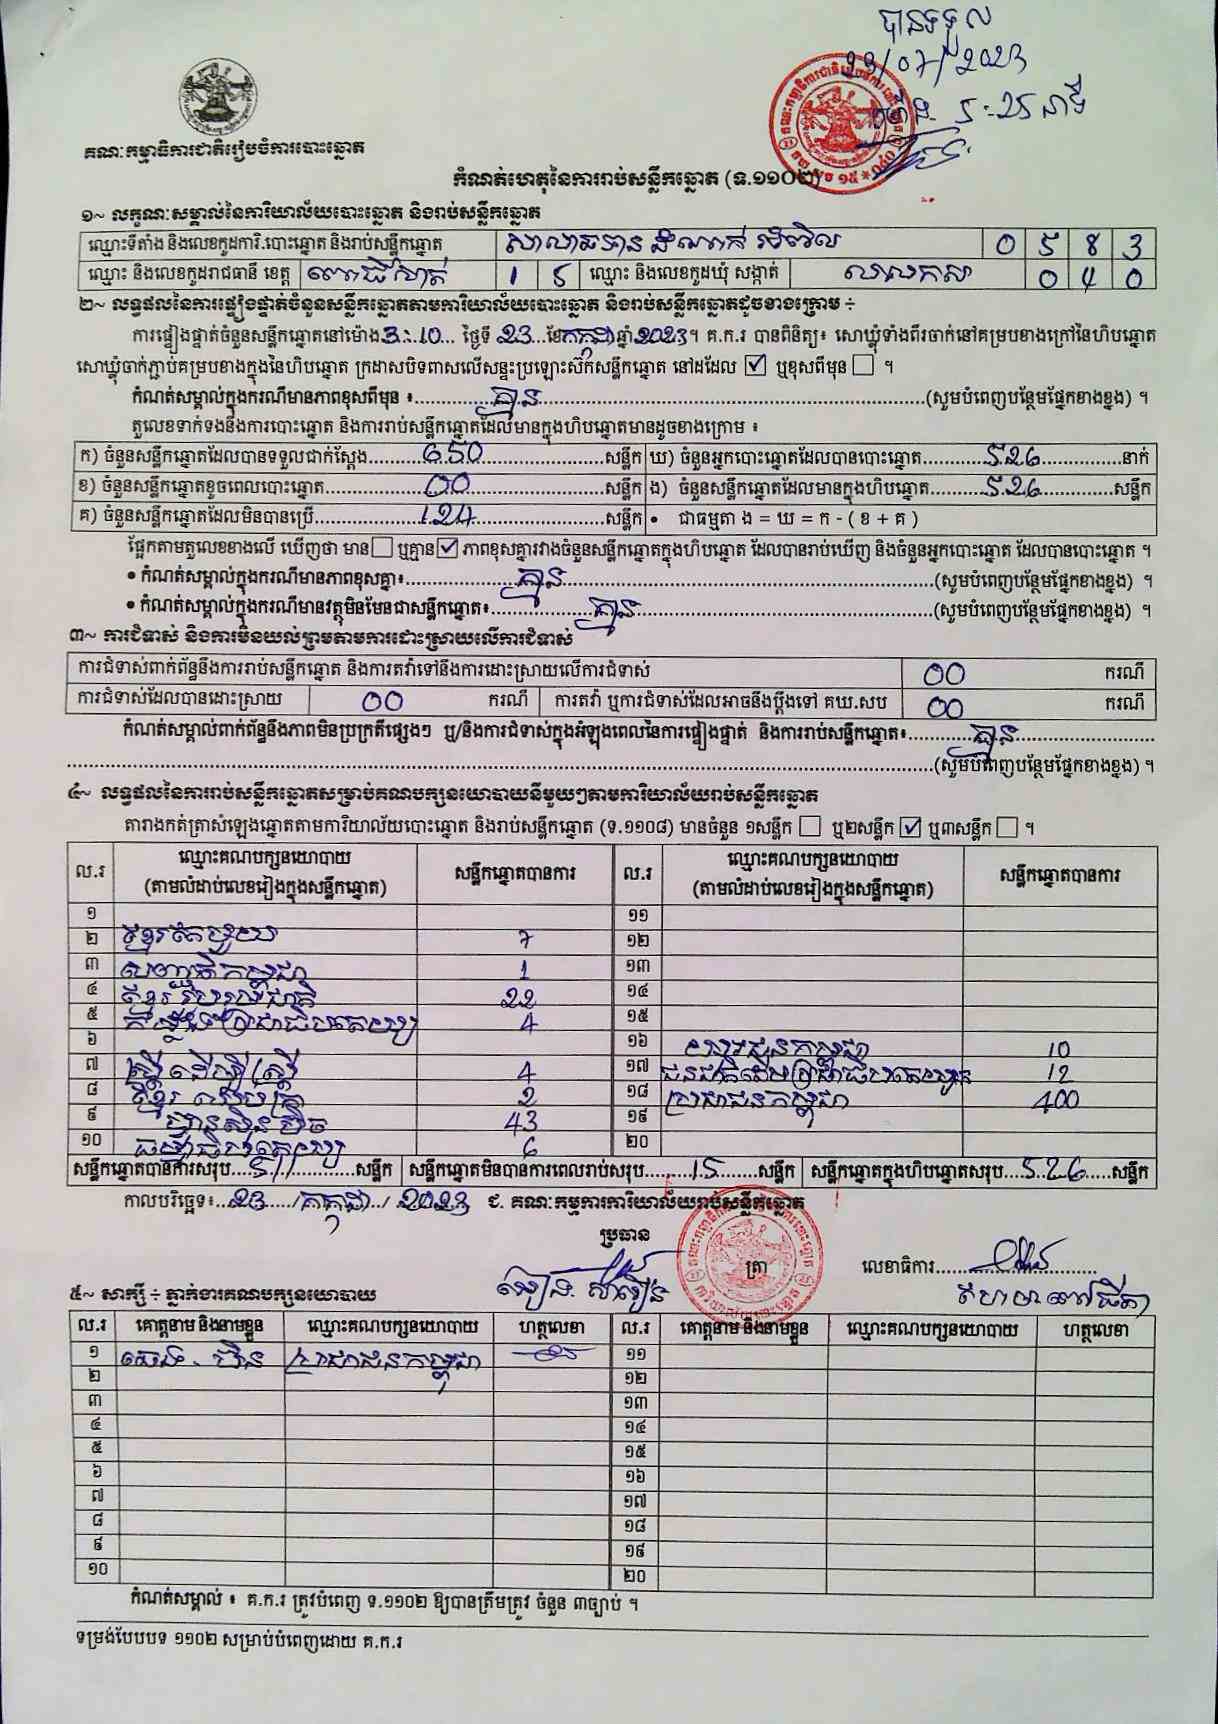 បានទទួល
23/07/2023
ម៉ោង 5:25 នាទី
គណៈកម្មាធិការជាតិរៀបចំការបោះឆ្នោត
កំណត់ហេតុនៃការរាប់សន្លឹកឆ្នោត (ទ.១១០២)
១~ លក្ខណៈសម្គាល់នៃការិយាល័យបោះឆ្នោត និងរាប់សន្លឹកឆ្នោត
ឈ្មោះទីតាំង និងលេខកូដការិ.បោះឆ្នោត និងរាប់សន្លឹកឆ្នោត សាលាឆទាន ដំណាក់ អំពិល 0 5 8 3
ឈ្មោះ និងលេខកូដរាជធានី ខេត្ត ពោធិ៍សាត់ 1 5 ឈ្មោះ និងលេខកូដឃុំ សង្កាត់ 0 4 0
២~ លទ្ធផលនៃការផ្ទៀងផ្ទាត់ចំនួនសន្លឹកឆ្នោតតាមការិយាល័យបោះឆ្នោត និងរាប់សន្លឹកឆ្នោតដូចខាងក្រោម ÷
ការផ្ទៀងផ្ទាត់ចំនួនសន្លឹកឆ្នោតនៅម៉ោង 3:10 ថ្ងៃទី 23 ខែ កក្កដា ឆ្នាំ 2023។ គ.ក.រ បានពិនិត្យ៖ សោឃ្លុំទាំងពីរចាក់នៅគម្របខាងក្រៅនៃហិបឆ្នោត
សោឃ្លុំចាក់ភ្ជាប់គម្របខាងក្នុងនៃហិបឆ្នោត ក្រដាសបិទពាសលើសន្ទះប្រឡោះស៊កសន្លឹកឆ្នោត នៅដដែល ☑ ឬខុសពីមុន ☐ ។
កំណត់សម្គាល់ក្នុងករណីមានភាពខុសពីមុន ៖ គ្មាន (សូមបំពេញបន្ថែមផ្នែកខាងខ្នង) ។
តួលេខទាក់ទងនឹងការបោះឆ្នោត និងការរាប់សន្លឹកឆ្នោតដែលមានក្នុងហិបឆ្នោតមានដូចខាងក្រោម ៖
ក) ចំនួនសន្លឹកឆ្នោតដែលបានទទួលជាក់ស្តែង 650 សន្លឹក ឃ) ចំនួនអ្នកបោះឆ្នោតដែលបានបោះឆ្នោត 526 នាក់
ខ) ចំនួនសន្លឹកឆ្នោតខូចពេលបោះឆ្នោត 00 សន្លឹក ង) ចំនួនសន្លឹកឆ្នោតដែលមានក្នុងហិបឆ្នោត 526 សន្លឹក
គ) ចំនួនសន្លឹកឆ្នោតដែលមិនបានប្រើ 124 សន្លឹក • ជាធម្មតា ង = ឃ = ក - ( ខ + គ )
ផ្អែកតាមតួលេខខាងលើ ឃើញថា មាន ☐ ឬគ្មាន ☑ ភាពខុសគ្នារវាងចំនួនសន្លឹកឆ្នោតក្នុងហិបឆ្នោត ដែលបានរាប់ឃើញ និងចំនួនអ្នកបោះឆ្នោត ដែលបានបោះឆ្នោត ។
• កំណត់សម្គាល់ក្នុងករណីមានភាពខុសគ្នា៖ គ្មាន (សូមបំពេញបន្ថែមផ្នែកខាងខ្នង) ។
• កំណត់សម្គាល់ក្នុងករណីមានវត្ថុមិនមែនជាសន្លឹកឆ្នោត៖ គ្មាន (សូមបំពេញបន្ថែមផ្នែកខាងខ្នង) ។
៣~ ការជំទាស់ និងការមិនយល់ព្រមតាមការដោះស្រាយលើការជំទាស់
ការជំទាស់ពាក់ព័ន្ធនឹងការរាប់សន្លឹកឆ្នោត និងការតវ៉ាទៅនឹងការដោះស្រាយលើការជំទាស់ 00 ករណី
ការជំទាស់ដែលបានដោះស្រាយ 00 ករណី ការតវ៉ា ឬការជំទាស់ដែលអាចនឹងប្តឹងទៅ គឃ.សប 00 ករណី
កំណត់សម្គាល់ពាក់ព័ន្ធនឹងភាពមិនប្រក្រតីផ្សេងៗ ឬ/និងការជំទាស់ក្នុងអំឡុងពេលនៃការផ្ទៀងផ្ទាត់ និងការរាប់សន្លឹកឆ្នោត៖ គ្មាន
(សូមបំពេញបន្ថែមផ្នែកខាងខ្នង) ។
៤~ លទ្ធផលនៃការរាប់សន្លឹកឆ្នោតសម្រាប់គណបក្សនយោបាយនីមួយៗតាមការិយាល័យរាប់សន្លឹកឆ្នោត
តារាងកត់ត្រាសំឡេងឆ្នោតតាមការិយាល័យបោះឆ្នោត និងរាប់សន្លឹកឆ្នោត (ទ.១១០៨) មានចំនួន ១សន្លឹក ☐ ឬ២សន្លឹក ☑ ឬ៣សន្លឹក ☐ ។
ល.រ ឈ្មោះគណបក្សនយោបាយ (តាមលំដាប់លេខរៀងក្នុងសន្លឹកឆ្នោត) សន្លឹកឆ្នោតបានការ ល.រ ឈ្មោះគណបក្សនយោបាយ (តាមលំដាប់លេខរៀងក្នុងសន្លឹកឆ្នោត) សន្លឹកឆ្នោតបានការ
១ ១១
២ ខ្មែរតែមួយ 7 ១២
៣ សញ្ជាតិកម្ពុជា 1 ១៣
៤ ខ្មែររួបរួមជាតិ 22 ១៤
៥ កម្លាំងប្រជាធិបតេយ្យ 4 ១៥
៦ ១៦ យុវជនកម្ពុជា 10
៧ ស្ត្រីដើម្បីស្ត្រី 4 ១៧ ជនជាតិដើមប្រជាធិបតេយ្យ 12
៨ ខ្មែរ 2 ១៨ ប្រជាជនកម្ពុជា 400
៩ ហ្វ៊ុនស៊ិនប៉ិច 43 ១៩
១០ ធម្មាធិបតេយ្យ 6 ២០
សន្លឹកឆ្នោតបានការសរុប 511 សន្លឹក សន្លឹកឆ្នោតមិនបានការពេលរាប់សរុប 15 សន្លឹក សន្លឹកឆ្នោតក្នុងហិបឆ្នោតសរុប 526 សន្លឹក
កាលបរិច្ឆេទ៖ 23 / កក្កដា / 2023 ជ. គណៈកម្មការការិយាល័យរាប់សន្លឹកឆ្នោត
ប្រធាន
ត្រា លេខាធិការ
៥~ សាក្សី ÷ ភ្នាក់ងារគណបក្សនយោបាយ
ល.រ គោត្តនាម និងនាមខ្លួន ឈ្មោះគណបក្សនយោបាយ ហត្ថលេខា ល.រ គោត្តនាម និងនាមខ្លួន ឈ្មោះគណបក្សនយោបាយ ហត្ថលេខា
១ ប្រជាជនកម្ពុជា ១១
២ ១២
៣ ១៣
៤ ១៤
៥ ១៥
៦ ១៦
៧ ១៧
៨ ១៨
៩ ១៩
១០ ២០
កំណត់សម្គាល់ ៖ គ.ក.រ ត្រូវបំពេញ ទ.១១០២ ឱ្យបានត្រឹមត្រូវ ចំនួន ៣ច្បាប់ ។
ទម្រង់បែបបទ ១១០២ សម្រាប់បំពេញដោយ គ.ក.រ